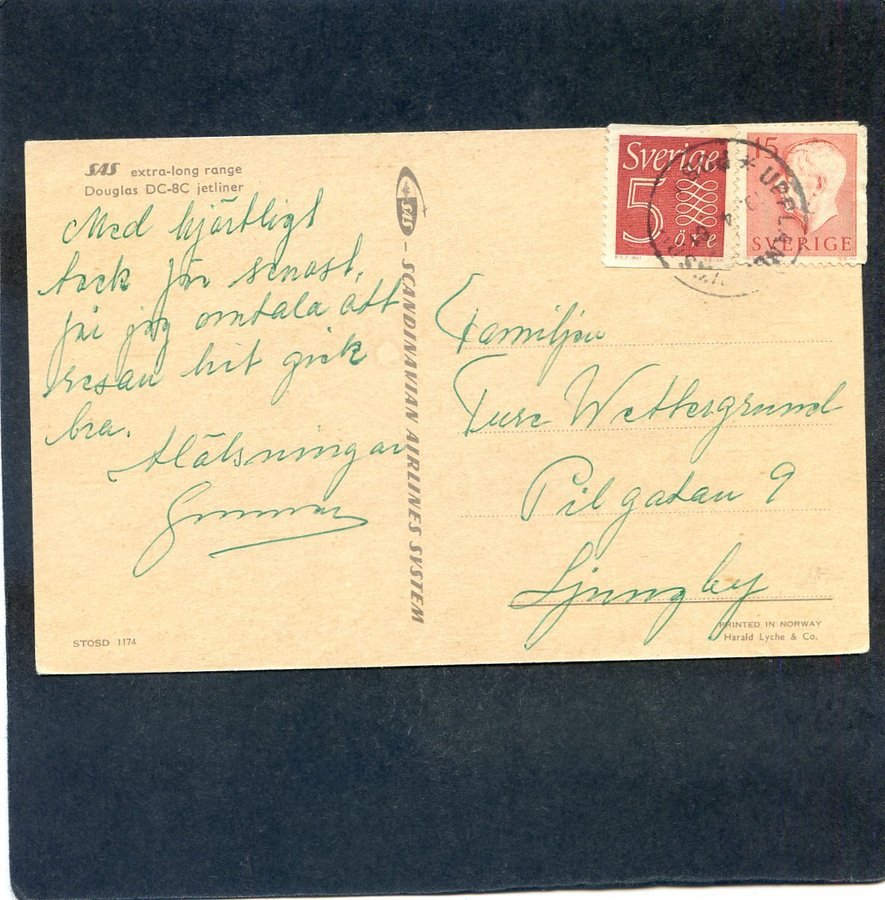 SAS extra-long range
Douglas DC-8C jetliner
Med hjärtligt
tack för senast,
får jag omtala att
resan hit gick
bra.
Hälsningar
Gunnar
STOSD 1174
SAS – SCANDINAVIAN AIRLINES SYSTEM
Sverige
5
öre
15
SVERIGE
UPPLANDS
Familjen
Ture Wettergrund
Pilgatan 9
Ljungby
PRINTED IN NORWAY
Harald Lyche & Co.